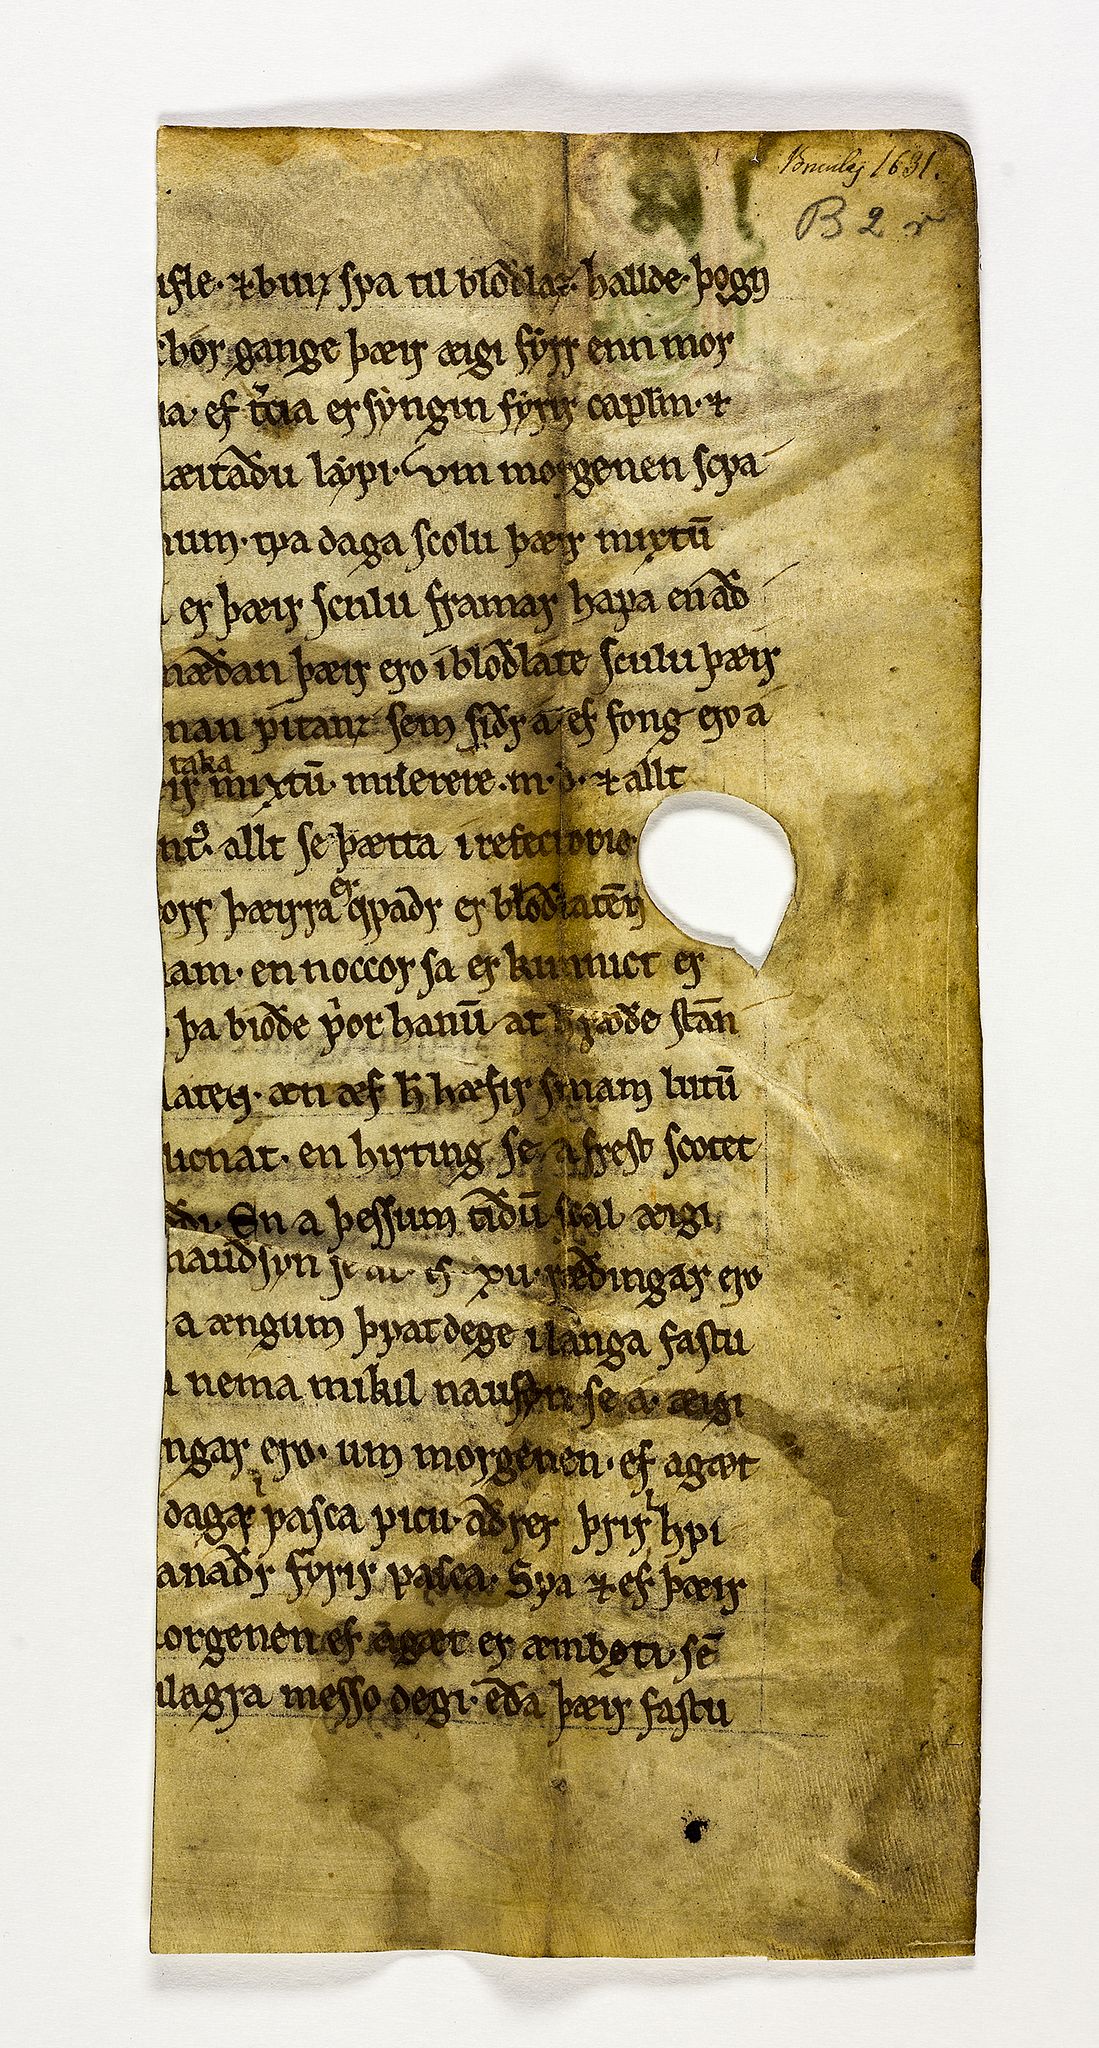 1631.
B 2 r
ifle · ⁊ buiꝛ sꝩa til bloðlaꝛ · hallde · þogn
hor gange þæir æigi fyrr enn mor
ia · ef t'cia er syngin fyrir capl̄m · ⁊
æitaðu læypi · um morgenen scꝩa
num · tꝩa daga scolu þæir mixtū
er þæir sculu framar haꝩa en að
næðan þæir ero i bloðlate sculu þæir
nan pitanꝛ sem siðr a ef fong ero a
taka
ir mixtū · miserere · m · d · ⁊ allt
nt᷒ · allt se þætta i refectorio ·
orr þæirra er qꝩaðr er bloðlatēn
am · en noccor sa er kunnict er
þa bioðe p'or hanū at h̄ ræðe stān
laten · æn æf h̄ hæfir sinam lutū
ucnat · en hirting se a frest scotet
ði · En a þessum tiðū scal æigi
nauðsyn xii · ræðingar ero
a ængum þꝩat dege i langa fastu
nema mikil nausyn se a · æigi
ngar ero · um morgenen · ef agæt
dagar i pasca ꝩicu · aðrer þrir i hꝩi
anaðr fyrir pasca · Sꝩa ⁊ ef þæir
orgenen ef agæt er æmboti · sē
ilagra messo degi · eða þæir fastu